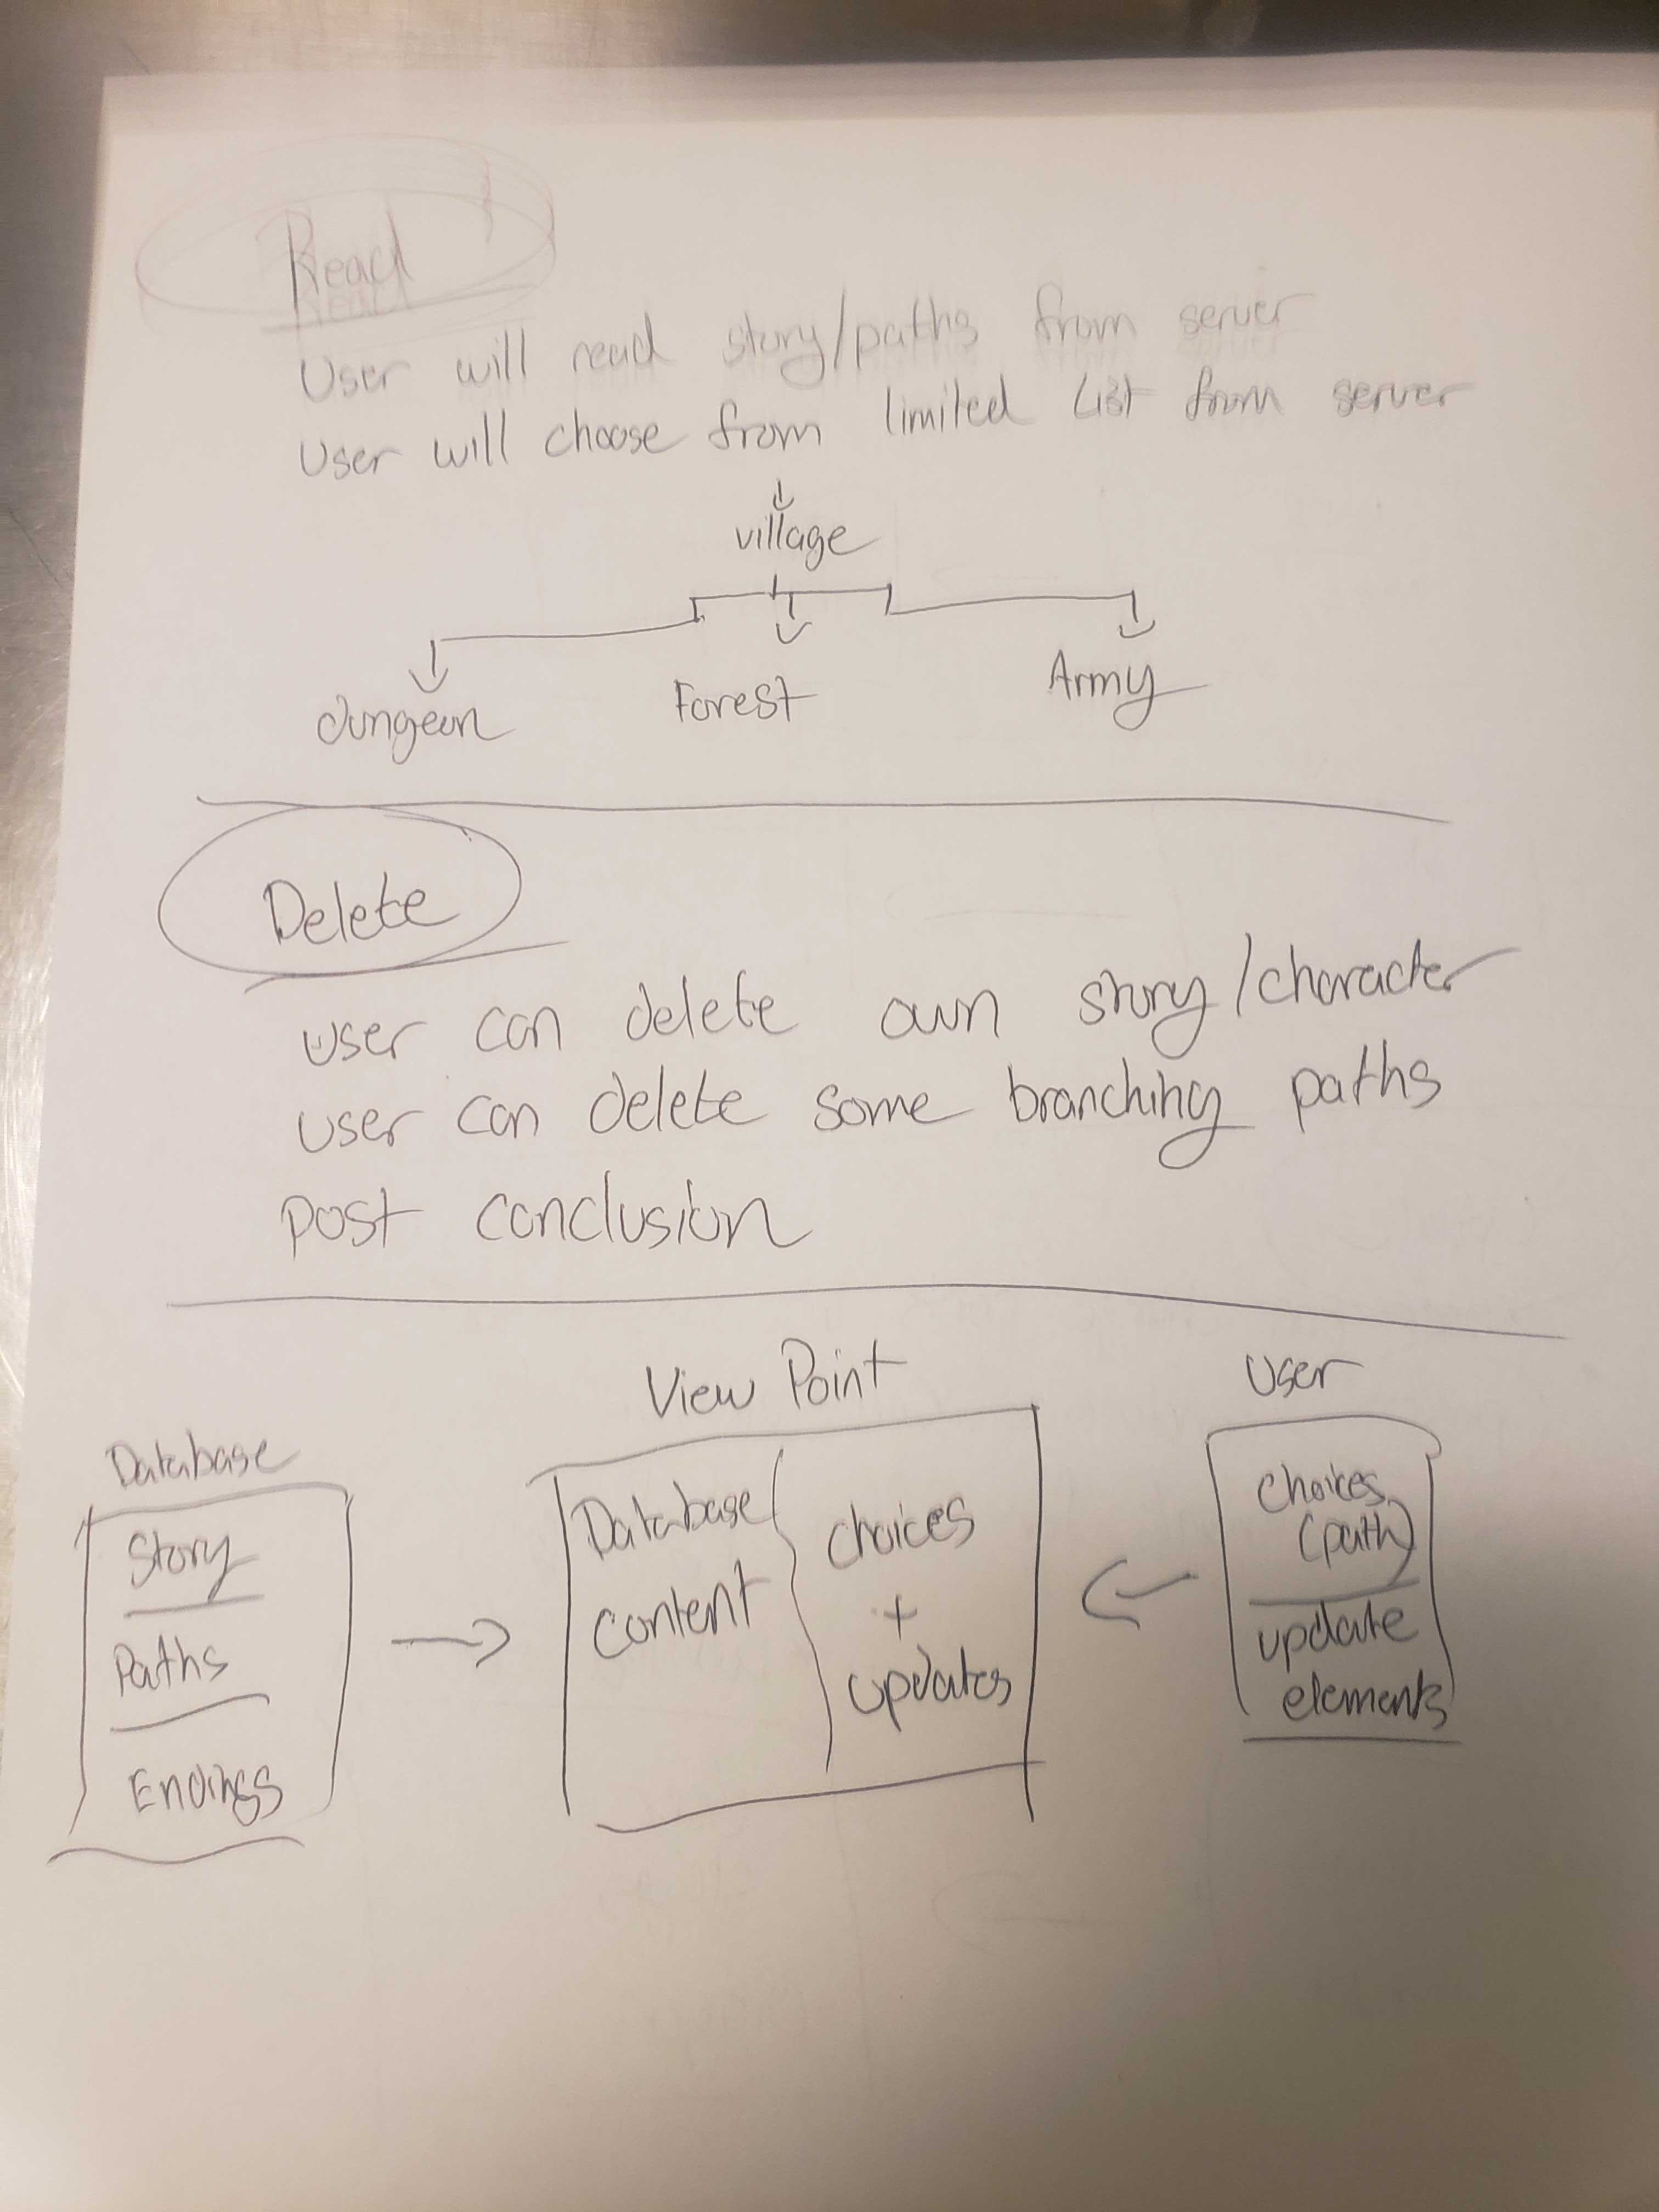 Read
User will read story/paths from server
User will choose from limited List from server
village
dungeon
Forest
Army
Delete
user can delete own story/character
user can delete some branching paths
post conclusion
View Point
User
Database
Story
Paths
Endings
Database
content
choices
+
updates
choices
(path)
update
elements